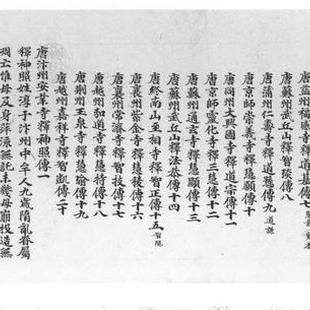 唐益州福感寺釋道基傳七
唐蘇州武丘山釋智琰傳八
唐蒲州仁壽寺釋道愻傳九道謙
唐京師崇義寺釋慧頵傳十
唐同州大興國寺釋道宗傳十一
唐京師靈化寺釋三慧傳十二
唐蘇州通玄寺釋慧頵傳十三
唐蘇州武丘山釋法恭傳十四
唐終南山至相寺釋智正傳十五智現
唐襄州紫金寺釋慧稜傳十六
唐襄州常濟寺釋智拔傳十七
唐越州弘道寺釋慧持傳十八
唐荊州玉泉寺釋慧瑜傳十九
唐越州嘉祥寺釋智凱傳二十
唐汴州安業寺釋神照傳一
釋神照姓淳于汴州中牟人九歲隋亂眷屬
凋亡惟母及身萍流無託未幾母崩投造無